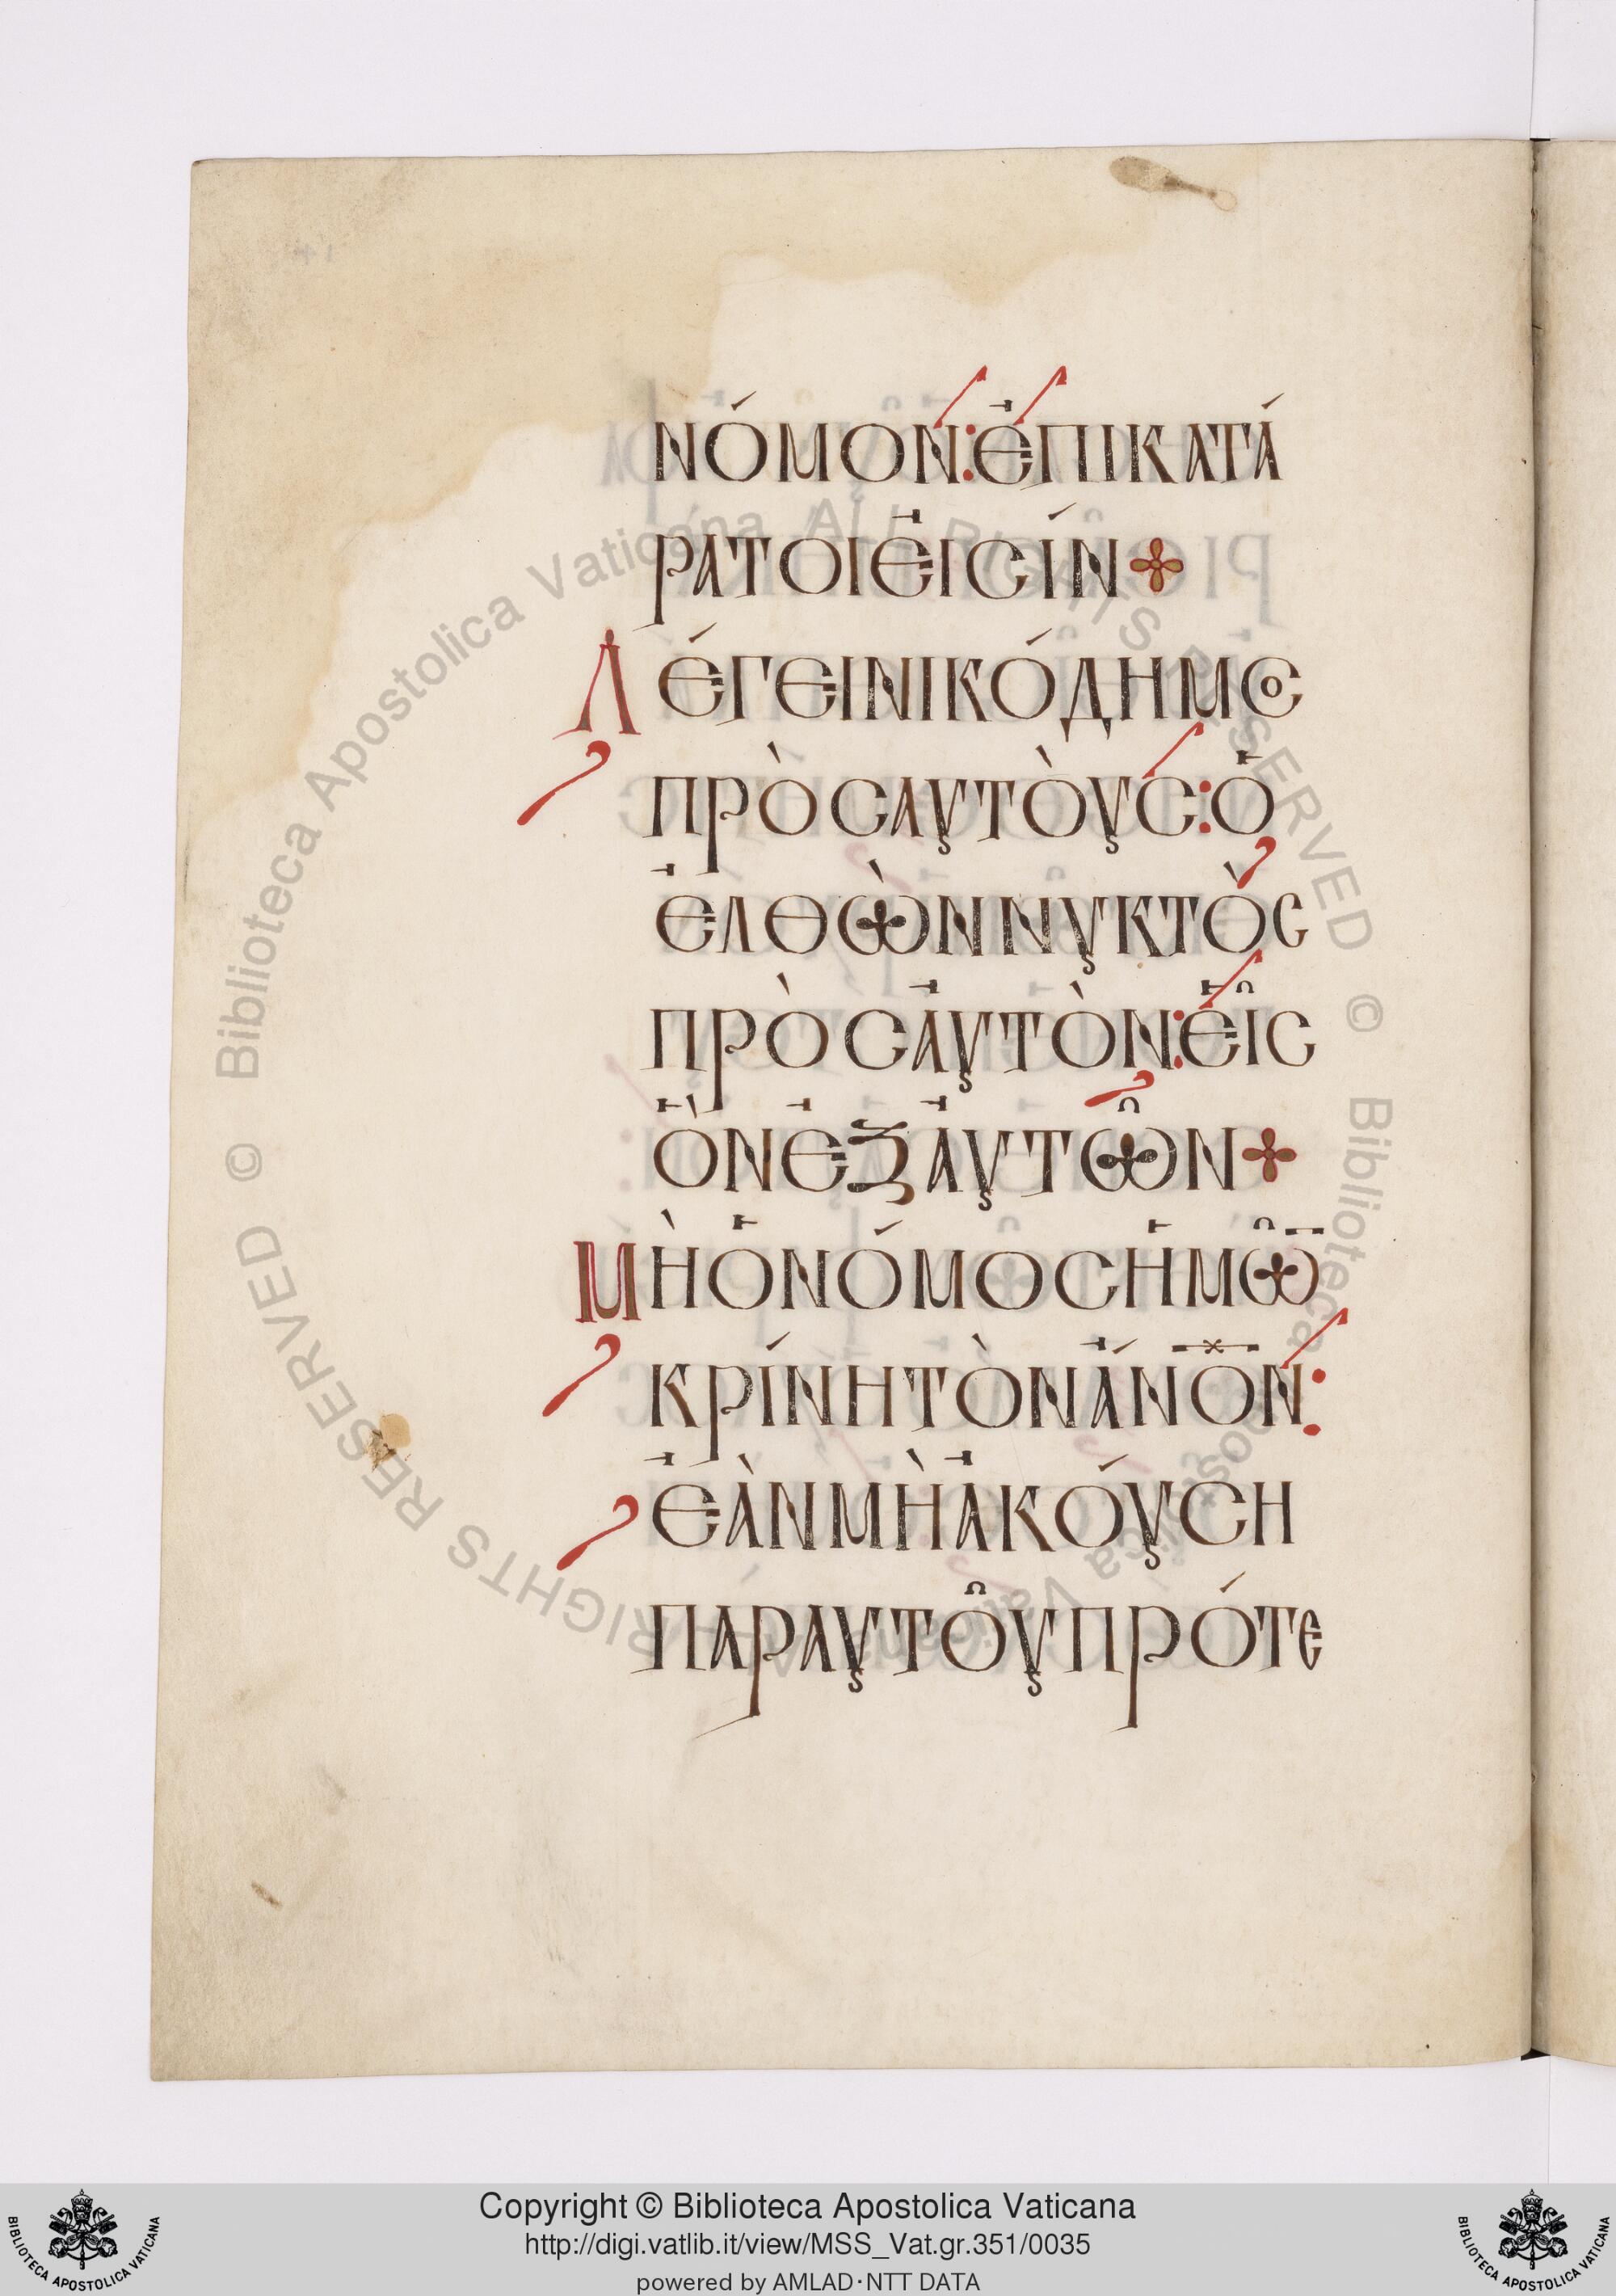 ΝΌΜΟΝ: ἘΠΙΚΑΤΆ
ΡΑΤΟΙ ἘΙϹΊΝ
ΛΈΓΕΙ ΝΙΚΌΔΗΜΟϹ
ΠΡῸϹ ΑΥΤῸΥϹ: Ὁ
ἘΛΘῺΝ ΝΥΚΤῸϹ
ΠΡῸϹ ἈΥΤῸΝ: ἘΙ͂Ϲ
ὋΝ ἘΞ ἈΥΤΩ͂Ν
ΜῊ Ὁ ΝΌΜΟϹ ἩΜΩ͂̅
ΚΡΊΝΗ ΤῸΝ ἌΝ̅Ο̅Ν:
ἘᾺΝ ΜῊ ἈΚΟΎϹΗ
ΠΑΡ ΑΥΤΟΥ͂ ΠΡΌΤΕ
© Biblioteca Apostolica Vaticana ALL RIGHTS RESERVED © Biblioteca Apostolica Vaticana ALL RIGHTS RESERVED
BIBLIOTECA APOSTOLICA VATICANA
Copyright © Biblioteca Apostolica Vaticana
http://digi.vatlib.it/view/MSS_Vat.gr.351/0035
powered by AMLAD·NTT DATA
BIBLIOTECA APOSTOLICA VATICANA